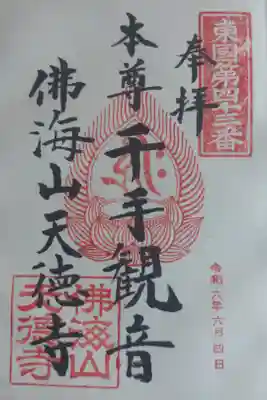 東国第四十三番
奉拝
本尊千手観音
佛海山天徳寺
令和六年六月四日
佛海山
天徳寺